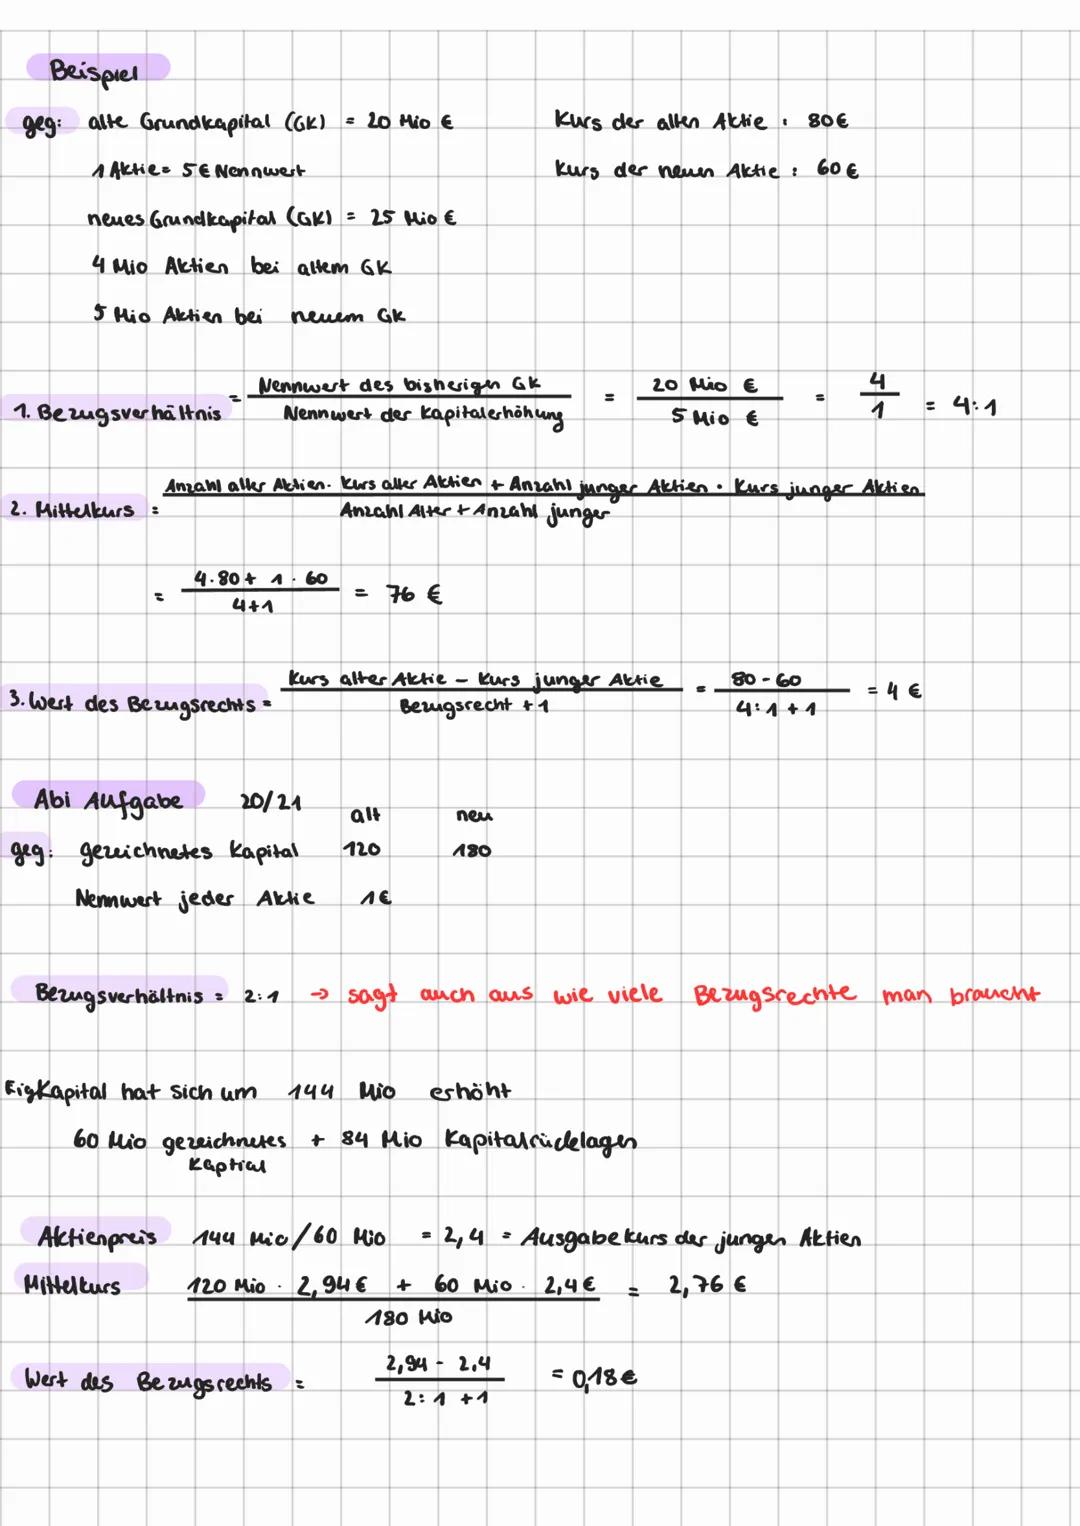 Beispiel
geg: alte Grundkapital (GK) = 20 Mio € Kurs der alten Aktie : 80€
1 Aktie= 5€ Nennwert Kurs der neuen Aktie : 60€
neues Grundkapital (GK) = 25 Mio €
4 Mio Aktien bei altem GK
5 Mio Aktien bei neuem GK
1. Bezugsverhältnis = Nennwert des bisherigen GK / Nennwert der Kapitalerhöhung = 20 Mio € / 5 Mio € = 4 / 1 = 4:1
2. Mittelkurs = Anzahl alter Aktien · Kurs alter Aktien + Anzahl junger Aktien · Kurs junger Aktien / Anzahl Alter + Anzahl junger
= 4·80 + 1·60 / 4+1 = 76 €
3. Wert des Bezugsrechts = Kurs alter Aktie - Kurs junger Aktie / Bezugsrecht +1 = 80-60 / 4:1 +1 = 4 €
Abi Aufgabe 20/21
alt neu
geg: gezeichnetes Kapital 120 180
Nennwert jeder Aktie 1€
Bezugsverhältnis = 2:1 → sagt auch aus wie viele Bezugsrechte man braucht
EigKapital hat sich um 144 Mio erhöht
60 Mio gezeichnetes + 84 Mio Kapitalrücklagen
Kaptial
Aktienpreis 144 Mio/60 Mio = 2,4 = Ausgabekurs der jungen Aktien
Mittelkurs 120 Mio · 2,94€ + 60 Mio · 2,4€ / 180 Mio = 2,76 €
Wert des Bezugsrechts = 2,94 - 2,4 / 2:1 +1 = 0,18€